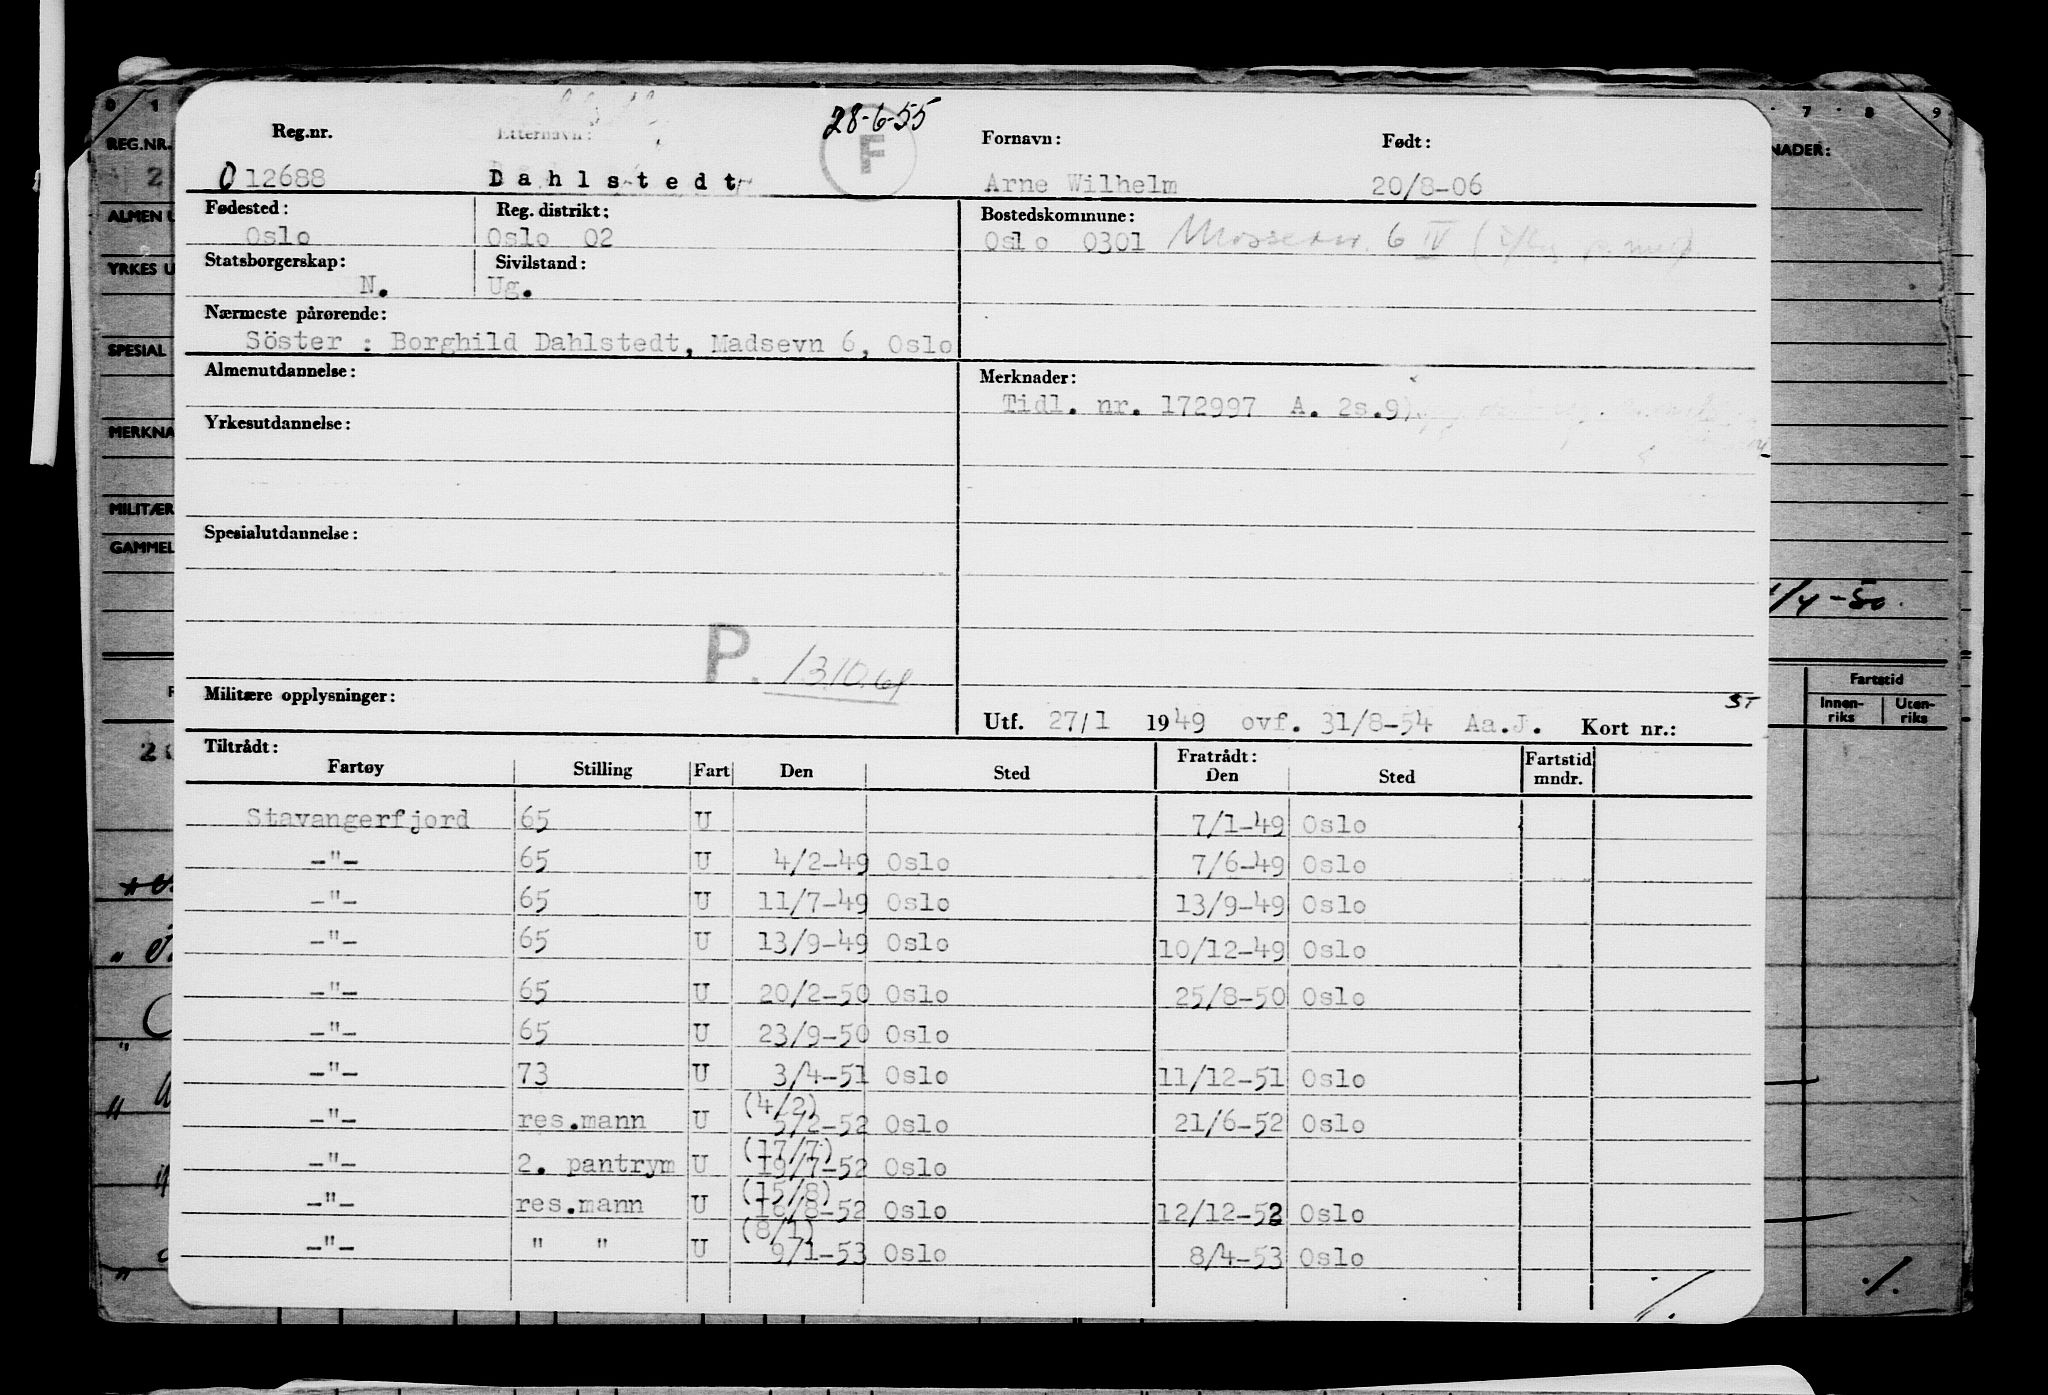 28-6-55
Reg.nr. Etternavn: F Fornavn: Født:
O 12688 Dahlstedt Arne Wilhelm 20/8-06
Fødested: Reg. distrikt: Bostedskommune:
Oslo Oslo 02 Oslo 0301 6 IV
Statsborgerskap: Sivilstand:
N. Ug.
Nærmeste pårørende:
Söster : Borghild Dahlstedt, Madsevn 6, Oslo
Almenutdannelse: Merknader:
Tidl. nr. 172997 A. 2s.9)
Yrkesutdannelse:
Spesialutdannelse:
P. 13.10.69
Militære opplysninger:
Utf. 27/1 1949 ovf. 31/8-54 Aa.J. Kort nr.: ST
Tiltrådt: Fratrådt: Fartstid
Fartøy Stilling Fart Den Sted Den Sted mndr.
Stavangerfjord 65 U 7/1-49 Oslo
-"- 65 U 4/2-49 Oslo 7/6-49 Oslo
-"- 65 U 11/7-49 Oslo 13/9-49 Oslo
-"- 65 U 13/9-49 Oslo 10/12-49 Oslo
-"- 65 U 20/2-50 Oslo 25/8-50 Oslo
-"- 65 U 23/9-50 Oslo
-"- 73 U 3/4-51 Oslo 11/12-51 Oslo
-"- res.mann U (4/2) 5/2-52 Oslo 21/6-52 Oslo
-"- 2. pantrym U (17/7) 19/7-52 Oslo
-"- res.mann U (15/8) 16/8-52 Oslo 12/12-52 Oslo
-"- " " U (8/1) 9/1-53 Oslo 8/4-53 Oslo
./.
0 1
REG.NR.
2
ALMEN U
YRKES U
SPESIAL
MERKNA
MILITÆR
GAMMEL
7 8 9
NADER:
/4-50.
Fartstid
Innen-riks Uten-riks
./.